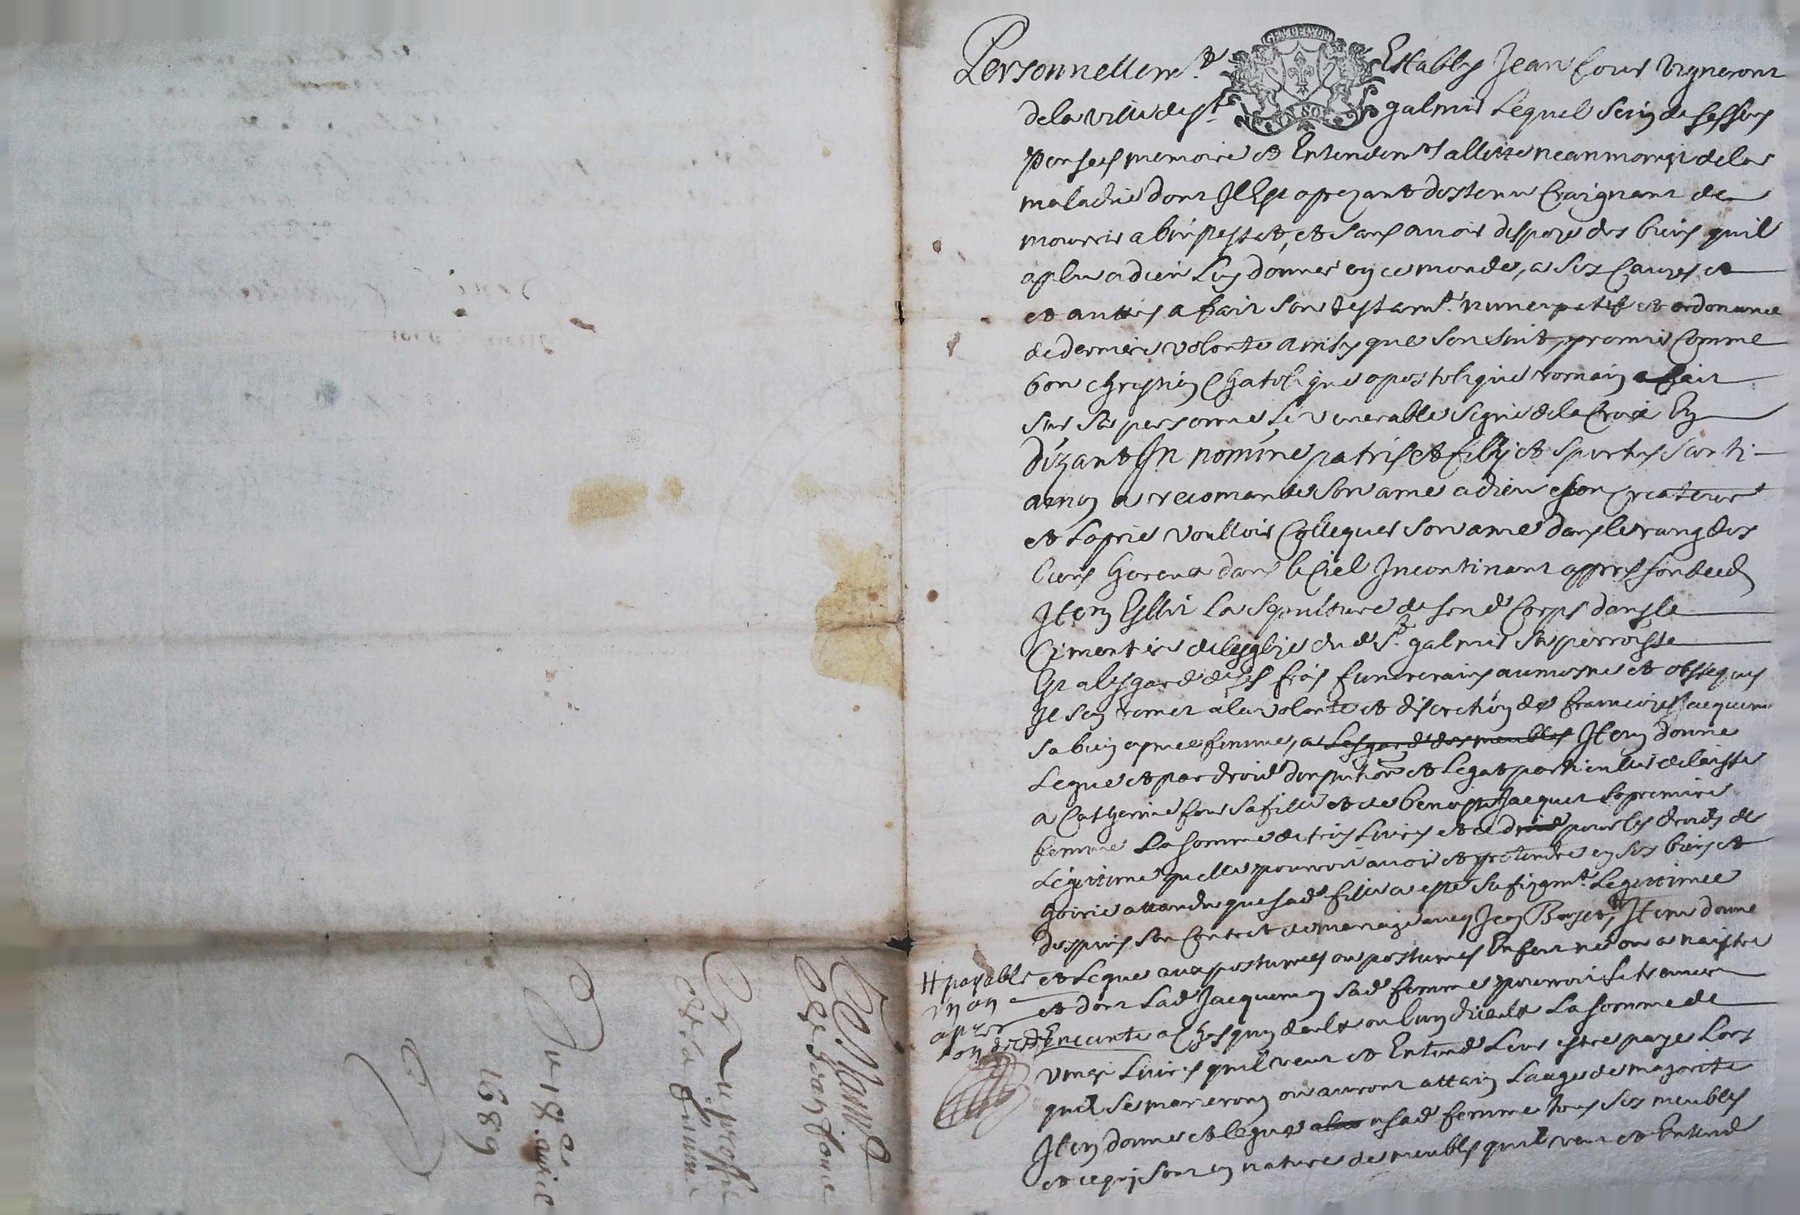 Personnellemt Estably Jean four vigneront
de la ville de st galmier Lequel sein de ses sens
pensees memoire et Entendemt allitté neanmoingz de la
maladie dont Il Est a prezant destenu Craignant de
mourir abintestat, et sans avoir dispoze des biens quil
a plu a dieu Luy donner en ce monde, a ses Causes et
et auttres a fait son testamt nuncupatif et ordonance
de derniere volonte ainsy que sen suit, premier Comme
bon chrestien Chatolique apostolique romain a fait
sur sa personne Le venerable signe de la Croix En
dizant In nomine patris et filii et spiritus santi
amen a recomande son ame a dieu son Createur
et La prie voulloir Colloquer son ame dans le rang des
biens hureux dans le Ciel Incontinant appres son deced
Item Eslit La sepulture de son d Corps dans le
Cimentiere de lesglize du d St galmier sa perroisse
Et a lesgard de ses frais funerraires aumosnes et obseques
Il sen remet a la volonte et discretion de francoise Jacquemo
sa bien aymee femme, a Lesgard des meubles Item donne
Legue et par droit dinstitution et Legat particulier delaisse
a Catherine four sa fille et de benoiste Jaquet sa premiere
femme La somme de trois Livres et ce droit pour les droits de
Legitime quelle pourroit avoir et pretendre en ses biens et
hoirie attandu que sad fille a este sufizemt Legitimee
despuis son Contrat de mariage avec Jean Item donne
# payable
un an
apres
son deced
et Legue aux postumes ou postumes Enfent ne ou a naistre
et dont Lad Jacquemon sad femme pourroit se trouver
Enceinte a Chasqun deulx ou lun dieulx La somme de
vingt Livres quil veut et Entend Leur estre paye Lors
quil se marieront ou auront attain Laage de majorite
Item donne et legue a sad femme tous ses meubles
et ce quj sont en nature de meubles quil veut et Entend
Testamt
de Jean four
Au proffit
de sa femme
Du 18e avril
1689